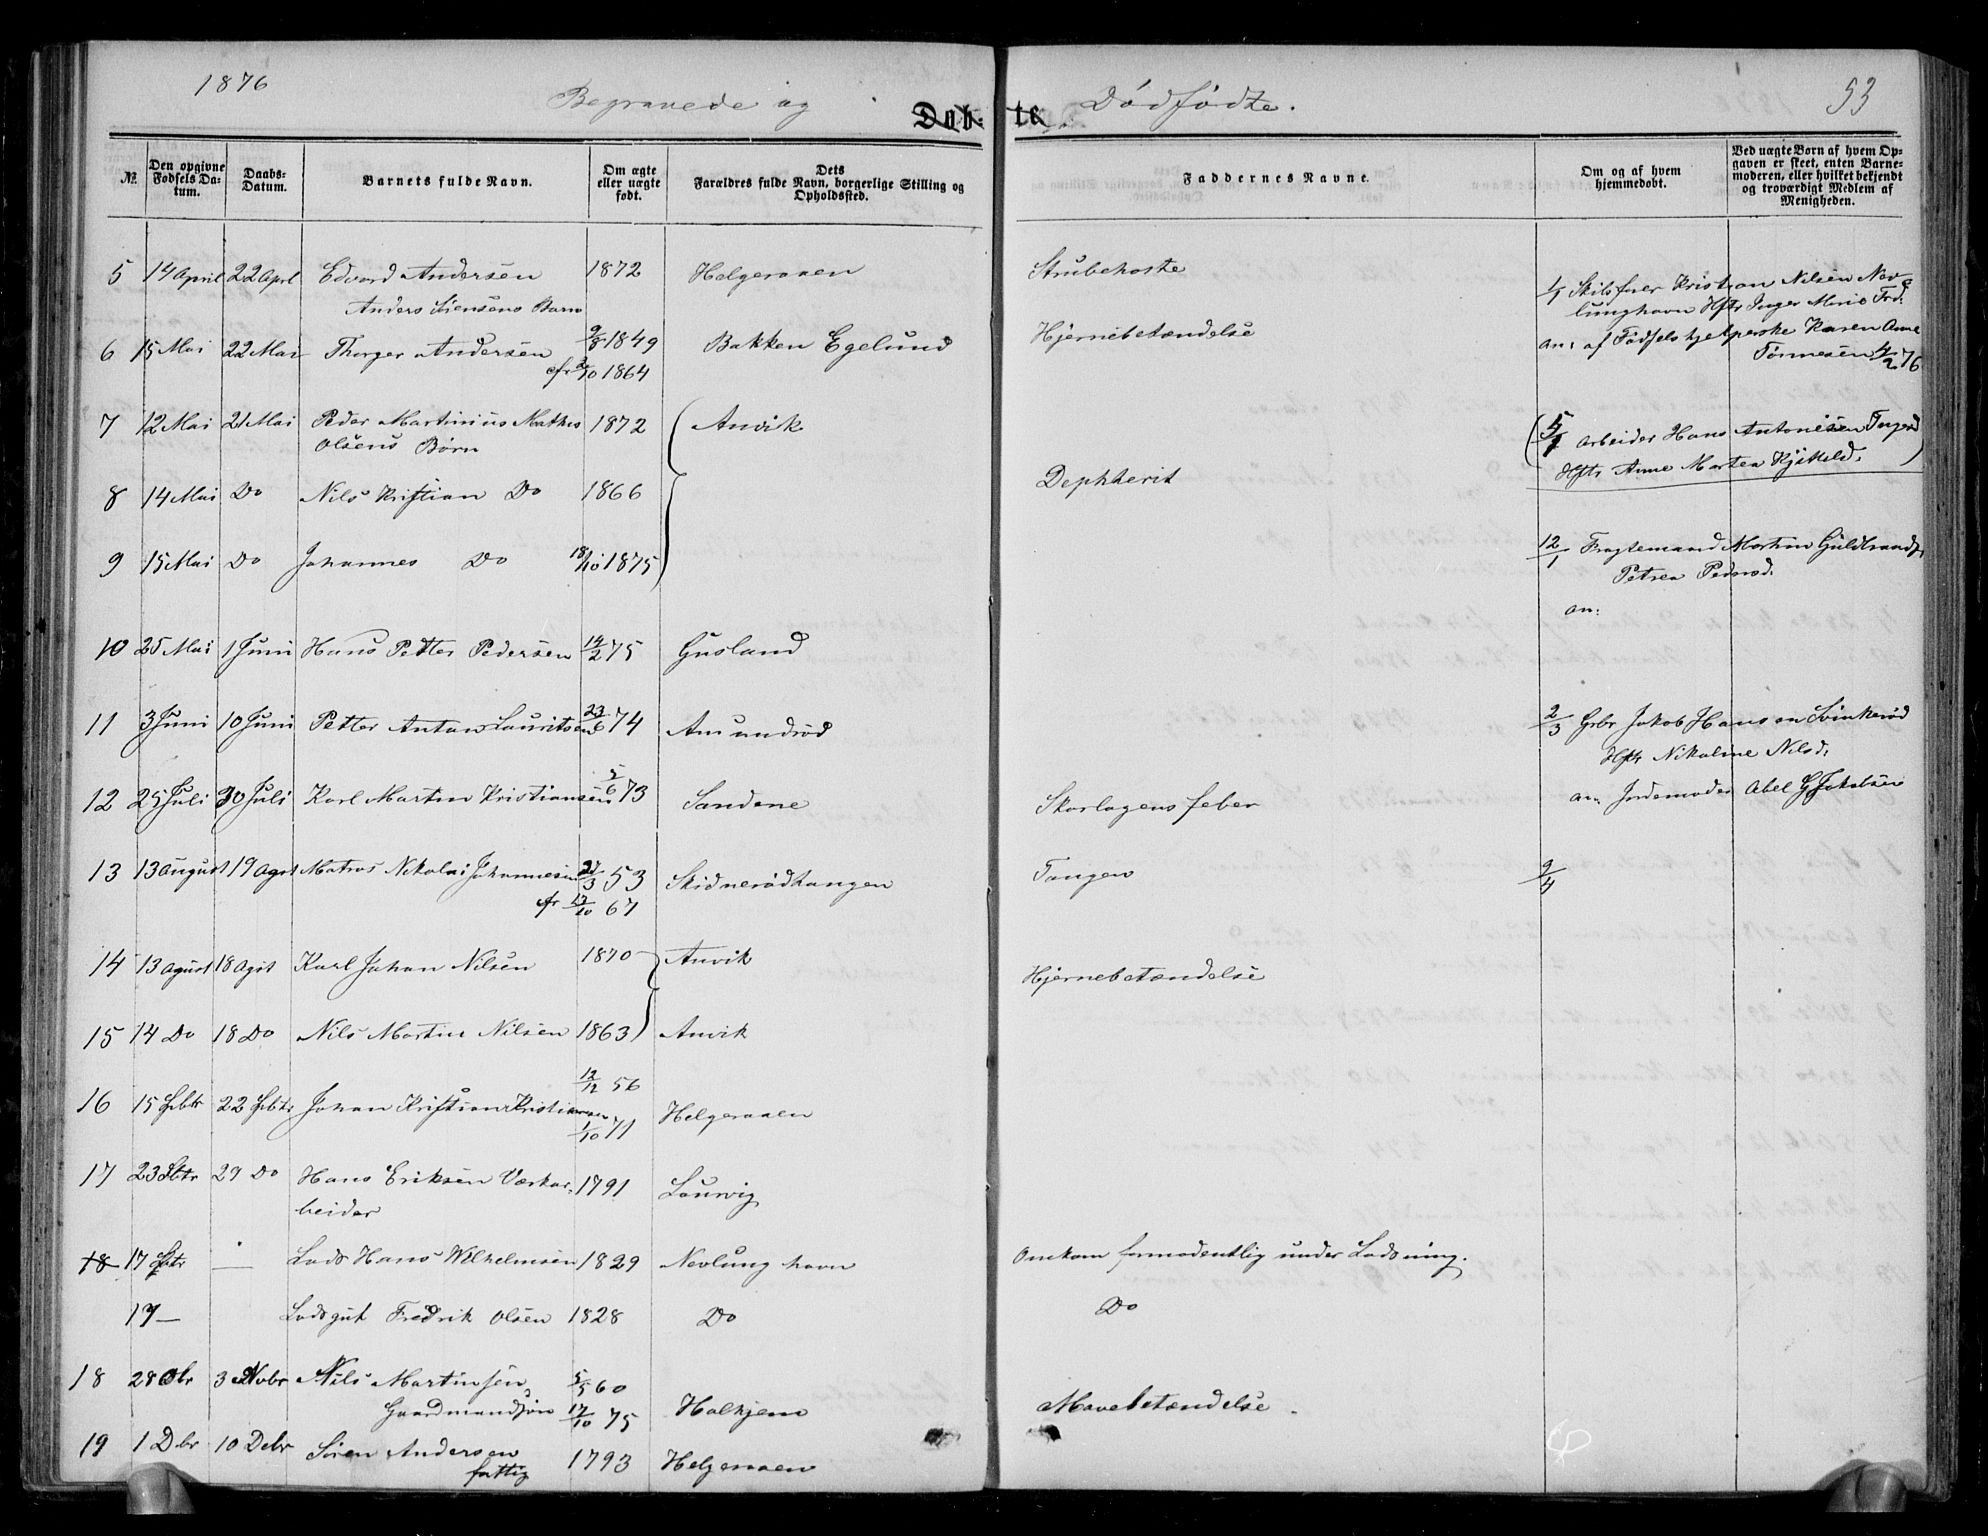 1876 Begravede og Dødfødte. 53
Døb-te
№
Den opgivne Fødsels Datum.
Daabs-Datum.
Barnets fulde Navn.
Om ægte eller uægte født.
Dets Forældres fulde Navn, borgerlige Stilling og Opholdssted.
Faddernes Navne.
Om og af hvem hjemmedøbt.
Ved uægte Børn af hvem Opgaven er skeet, enten Barnemoderen, eller hvilket bekjendt og troværdigt Medlem af Menigheden.
5 14 April 22 Aprl Edvard Andersen 1872 Helgeraaen Strubehoste
Anders Børn
6 15 Mai 22 Mai Thorger Andersen 9/8 1849 Bakken Egelund Hjernebetændelse
cfr 2/10 1864
7 12 Mai 21 Mai Peder Martinius Mathis 1872 Anvik
Olsens Børn
8 14 Mai Do Nils Kristian Do 1866 Dephterit
9 15 Mai Do Johannes Do 18/10 1875
10 25 Mai 1 Juni Hans Petter Pedersen 14/2 75 Gusland
11 3 Juni 10 Juni Petter Anton Lauritsen 23/6 74 Amundrød
12 25 Juli 30 Juli Karl Martin Kristiansen 5/6 73 Sandene Skarlagensfeber
13 13 August 19 Agst Matros Nikolai Johannesen 27/3 53 Skidnerødtangen Tangen
cfr 17/10 67
14 13 Agust 18 Agst Karl Johan Nilsen 1870 Anvik Hjernebetændelse
15 14 Do 18 Do Nils Martin Nilsen 1863 Anvik
16 15 22 Johan Kristian Kristiansen 12/12 56 Helgeraaen
1/10 71
17 23 29 Do Hans Eriksen Værkar- 1791 Laurvig
beider
18 17 — Lods Hans Wilhelmsen 1829 Nevlunghavn Omkom formodentlig under Lodsning.
17 — Lodsgut Fredrik Olsen 1828 Do Do
18 28 Obr 3 Novbr Nils Martinsen 5/5 60
Gaardmandssøn 17/10 75 Halkjem Mavebetændelse.
19 1 Dbr 10 Debr Søren Andersen 1793 Helgeraaen
fattig
1/1 Skibsfører Kristian Nilsen Nev-
lunghavn Hstr Inger Marie Frd:
an: af Fødselshjelperske Karen Anne
Tønnesen 4/2 76
5/1 Arbeider Hans Antonisen
Hstr Anne Martea
12/1 Fragtemand Martin
Petrea Pedersd.
an:
2/3 Grbr Jakob Hansen
Hstr Nikoline Nilsd.
an: Jordemoder Abel G Jakobsen
9/4